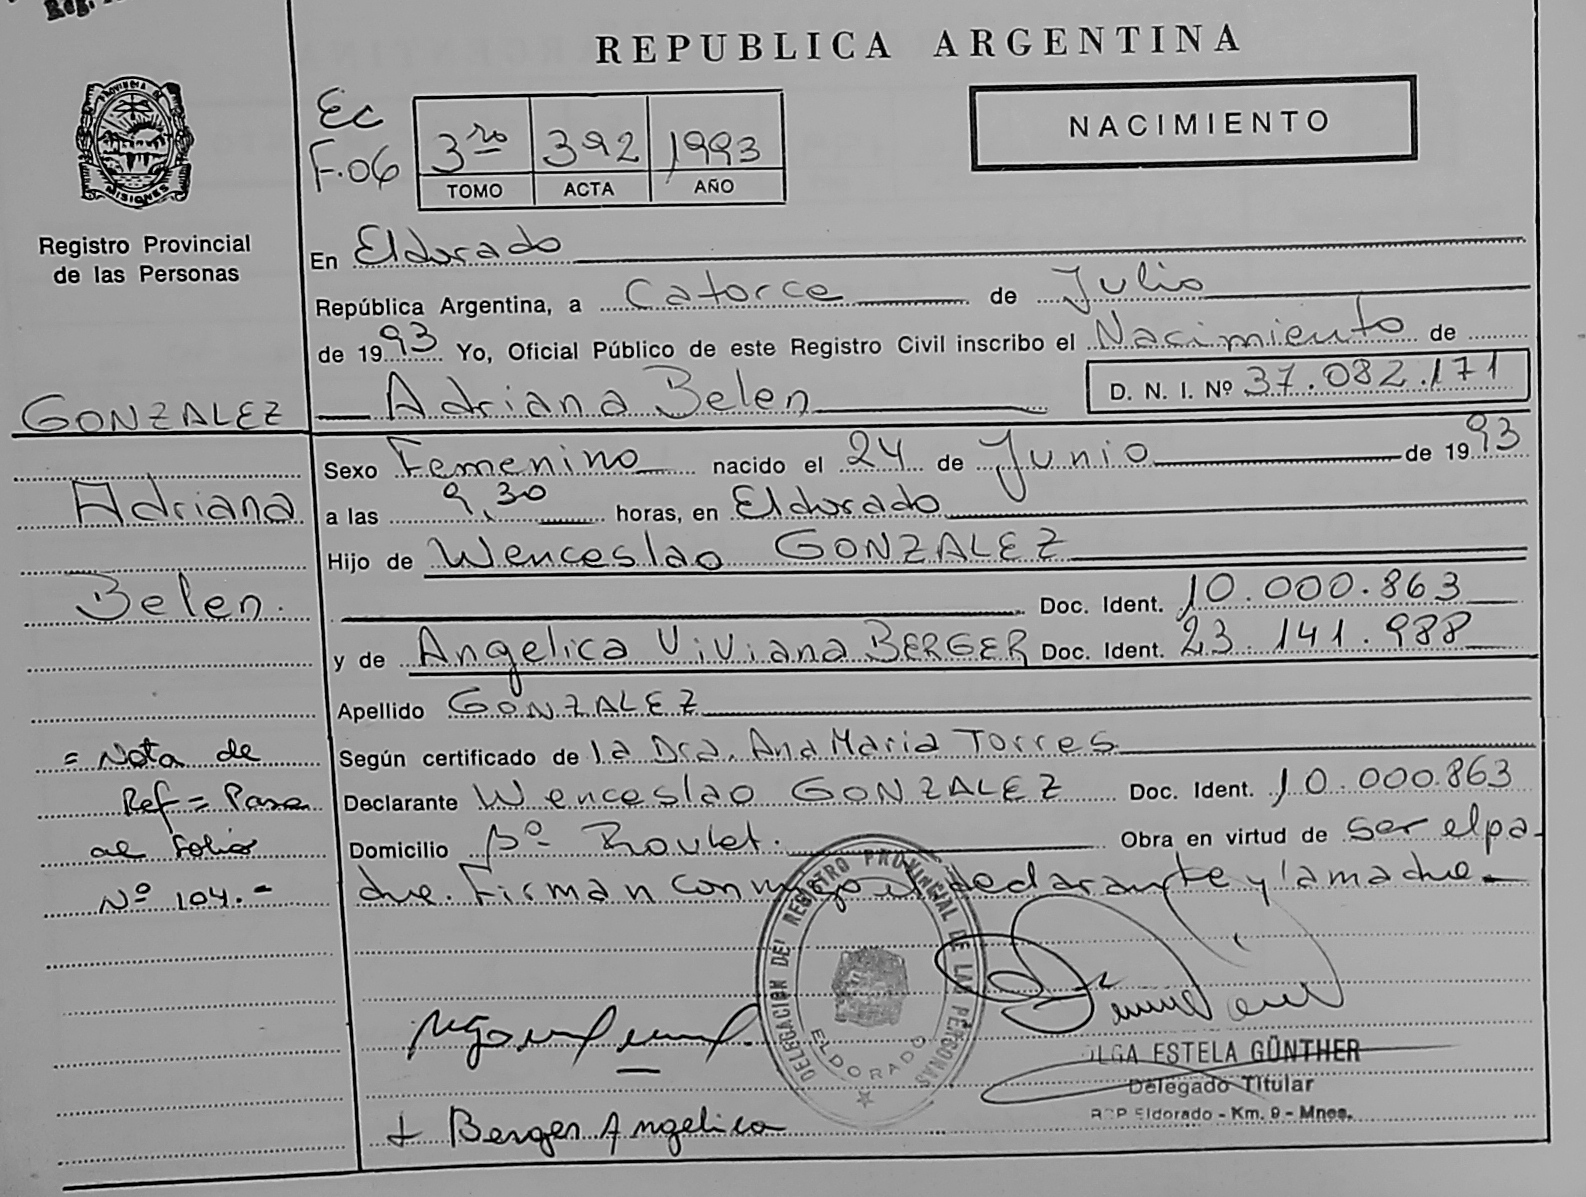 Reg.
REPUBLICA ARGENTINA
PROVINCIA DE MISIONES
Registro Provincial
de las Personas
Ec
F.06
3ro 392 1993
TOMO ACTA AÑO
NACIMIENTO
En Eldorado
República Argentina, a Catorce de Julio
de 1993 Yo, Oficial Público de este Registro Civil inscribo el Nacimiento de
Adriana Belen D. N. I. Nº 37.082.171
GONZALEZ
Adriana
Belen.
Sexo Femenino nacido el 24 de Junio de 1993
a las 9,30 horas, en Eldorado
Hijo de Wenceslao GONZALEZ
Doc. Ident. 10.000.863
y de Angelica Viviana BERGER Doc. Ident. 23.141.988
Apellido GONZALEZ
Según certificado de la Dra. Ana Maria Torres
Declarante Wenceslao GONZALEZ Doc. Ident. 10.000.863
Domicilio Bº Roulet. Obra en virtud de ser el pa-
dre. Firman conmigo el declarante y la madre
= Nota de
Ref = Pase
al folio
Nº 104.-
DELEGACIÓN DEL REGISTRO PROVINCIAL DE LAS PERSONAS
ELDORADO
OLGA ESTELA GÜNTHER
Delegado Titular
RCP Eldorado - Km. 9 - Mnes.
+ Berger Angelica